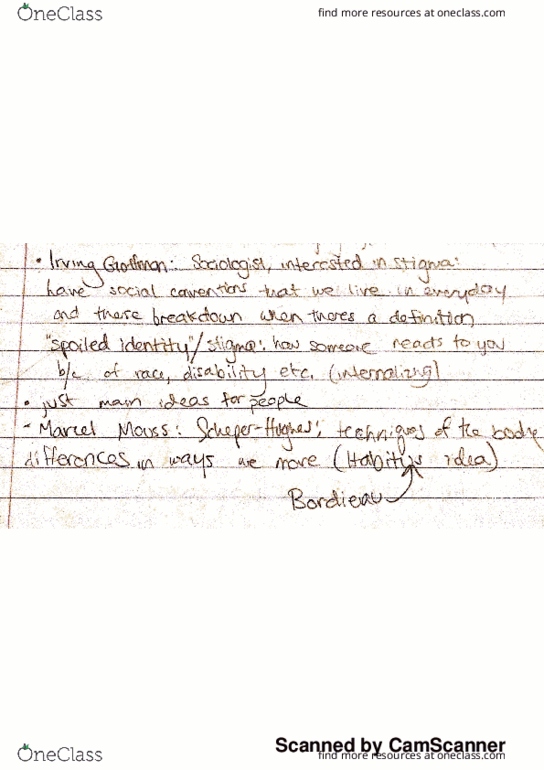 OneClass
find more resources at oneclass.com
• Irving Goffman: Sociologist, interested in stigma:
have social conventions that we live in everyday
and there breakdown when theres a definition
"spoiled identity"/stigma: how someone reacts to you
b/c of race, disability etc. (internalizing)
• just main ideas for people
- Marcel Mauss: Scheper-Hughes; techniques of the body
differences in ways we move (Habitus idea)
Bordieau
Scanned by CamScanner
OneClass
find more resources at oneclass.com